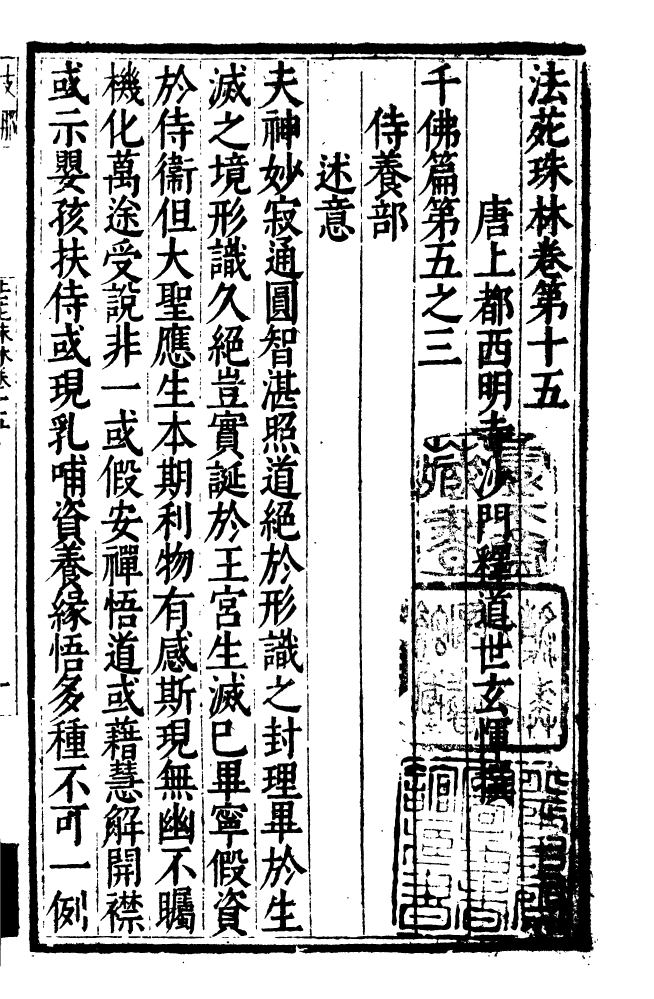 法苑珠林卷第十五
唐上都西明寺沙門釋道世玄惲撰
千佛篇第五之三
侍養部
述意
夫神妙寂通圓智湛照道絕於形識之封理畢於生
滅之境形識久絕豈實誕於王宮生滅巳畢寧假資
於侍衞但大聖應生本期利物有感斯現無幽不矚
機化萬途受說非一或假安禪悟道或藉慧解開襟
或示嬰孩扶侍或現乳哺資養緣悟多種不可一例